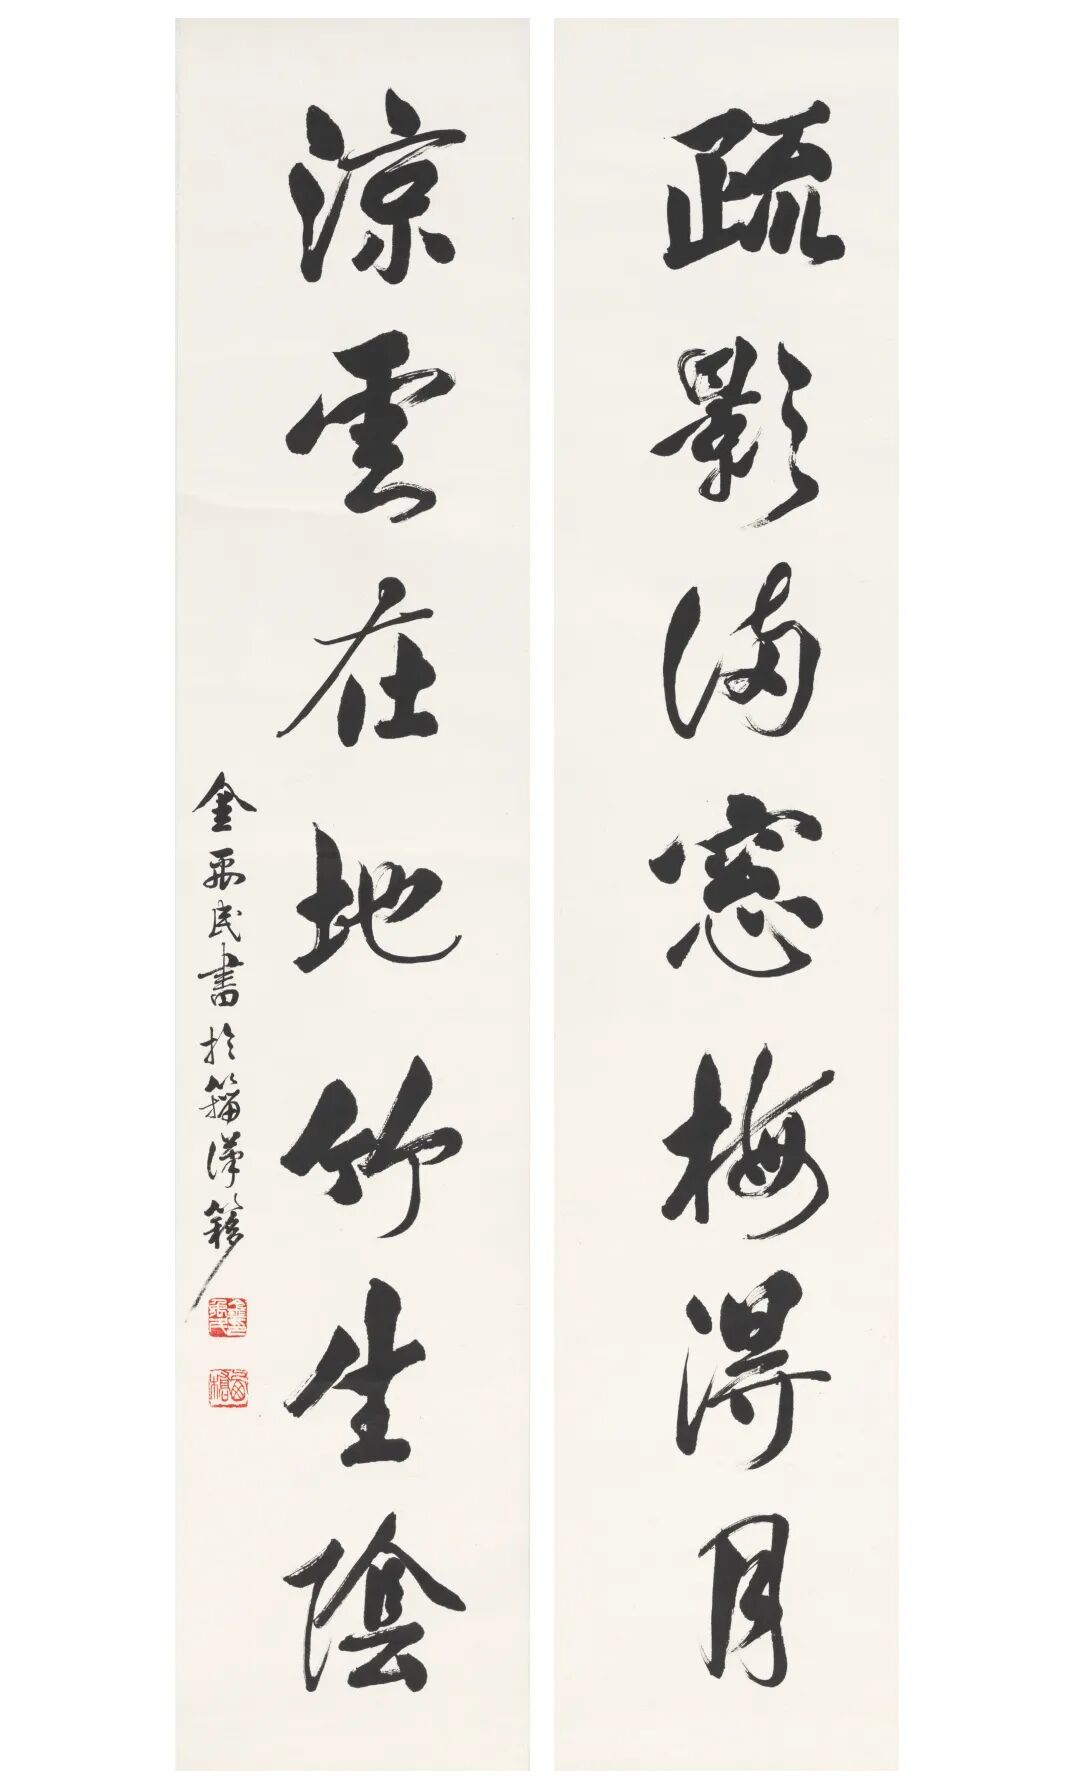 疏影滿窓梅得月
涼雲在地竹生陰
金禹民書於籀漢簃